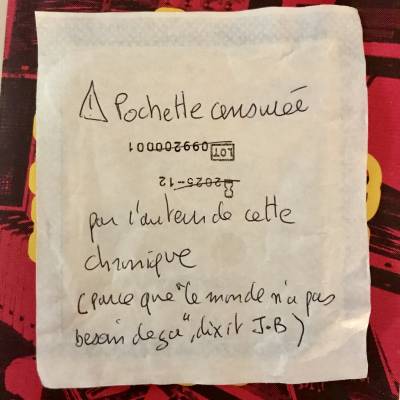 ⚠ Pochette censurée
LOT 0992000001
2025-12
par l'auteur de cette
chronique
(parce que "le monde n'a pas
besoin de ça", dixit J-B)